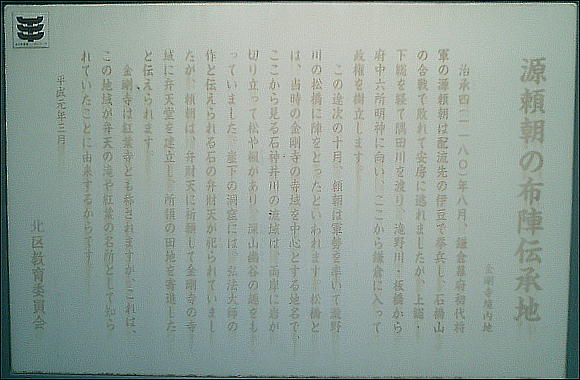 源頼朝の布陣伝承地
金剛寺境内地
治承四(一一八〇)年八月、鎌倉幕府初代将
軍の源頼朝は配流先の伊豆で挙兵し、石橋山
の合戦で敗れて安房に逃れましたが、上総・
下総を経て隅田川を渡り、滝野川・板橋から
府中六所明神に向い、ここから鎌倉に入って
政権を樹立します。
この途次の十月、頼朝は軍勢を率いて瀧野
川の松橋に陣をとったといわれます。松橋と
は、当時の金剛寺の寺域を中心とする地名で、
ここから見る石神井川の流域は、両岸に岩が
切り立って松や楓があり、深山幽谷の趣をも
っていました。崖下の洞窟には、弘法大師の
作と伝えられる石の弁財天が祀られていまし
たが、頼朝は、弁財天に祈願して金剛寺の寺
域に弁天堂を建立し、所領の田地を寄進した
と伝えられます。
金剛寺は紅葉寺とも称されますが、これは、
この地域が弁天の滝や紅葉の名所として知ら
れていたことに由来するからです。
平成元年三月
北区教育委員会